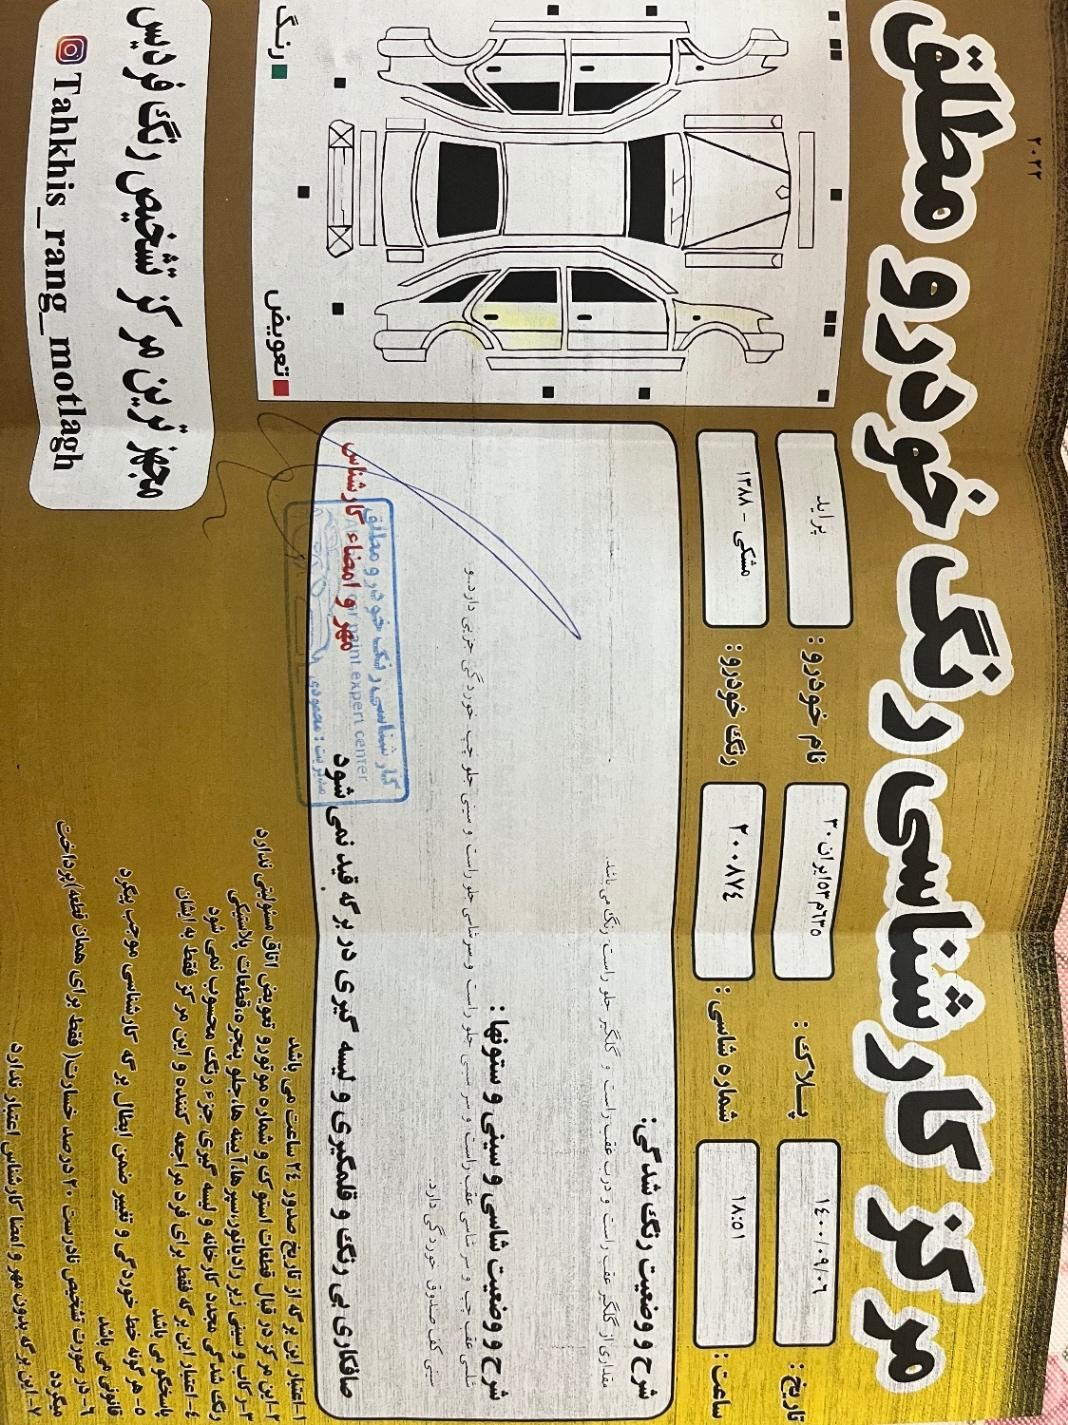 ۲۰۲۲
مرکز کارشناسی رنگ خودرو مطلق
تاریخ: ۱۴۰۰/۰۹/۰۶
پلاک: ۶۳۵م۵۳ایران۳۰
نام خودرو: پراید
ساعت: ۱۸:۵۱
شماره شاسی: ۲۰۰۸۷۴
رنگ خودرو: مشکی - ۱۳۸۸
شرح و وضعیت رنگ شدگی:
مقداری از گلگیر عقب راست و درب عقب راست و گلگیر جلو راست، رنگ می باشد.
شرح و وضعیت شاسی و سینی و ستونها:
شاسی عقب چپ و سرشاسی عقب راست و سر سینی جلو راست و سرشاسی جلو راست و سینی جلو چپ خوردگی جزیی دارد. و
سینی کف صندوق خوردگی دارد.
صافکاری بی رنگ و قلمگیری و لیسه گیری در برگه قید نمی شود
مهر و امضاء کارشناس
کارشناسی رنگ خودرو مطلق
paint expert center
مدیریت: محمودی
رنگ
تعویض
۱-اعتبار این برگه از تاریخ صدور ۲۴ ساعت می باشد
۲-این مرکز در قبال قطعات استوک و شماره موتور و تعویض اتاق مسئولیتی ندارد
۳-رکاب و سینی زیر رادیاتور،سپرها،آیینه ها،جلو پنجره،قطعات پلاستیکی
رنگ شدگی مجدد کارخانه و لیسه گیری جزء رنگ محسوب نمی شود
۴-اعتبار این برگه فقط برای فرد مراجعه کننده و این مرکز فقط به ایشان
پاسخگو می باشد
۵-هرگونه خط خوردگی و تغییر ضمن ابطال برگه کارشناسی موجب پیگرد
قانونی می باشد
۶-در صورت تشخیص نادرست ۲۰درصد خسارت( فقط برای همان قطعه)پرداخت
میگردد
۷-این برگه بدون مهر و امضا کارشناس اعتبار ندارد
مجهز ترین مرکز تشخیص رنگ فردیس
Tahkhis_rang_motlagh